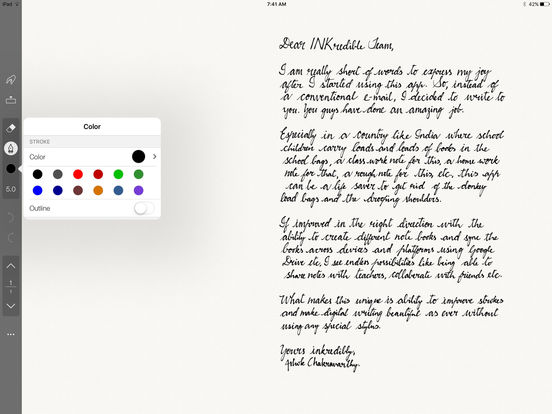 iPad
7:41 AM
42%
Color
STROKE
Color
Outline
5.0
1
1
Dear INKredible Team,
I am really short of words to express my joy
after I started using this app. So, instead of
a conventional e-mail, I decided to write to
you. You guys have done an amazing job.
Especially in a country like India where school
children carry loads and loads of books in the
school bags, a class work note for this, a home work
note for that, a rough note for this, etc, this app
can be a life saver to get rid of the donkey
load bags and the drooping shoulders.
If improved in the right direction with the
ability to create different note books and sync the
books across devices and platforms using Google
Drive etc, I see endless possibilities like being able to
share notes with teachers, collaborate with friends etc.
What makes this unique is ability to improve strokes
and make digital writing beautiful as ever without
using any special stylus.
Yours inkredibly,
Ashok Chakravarthy.